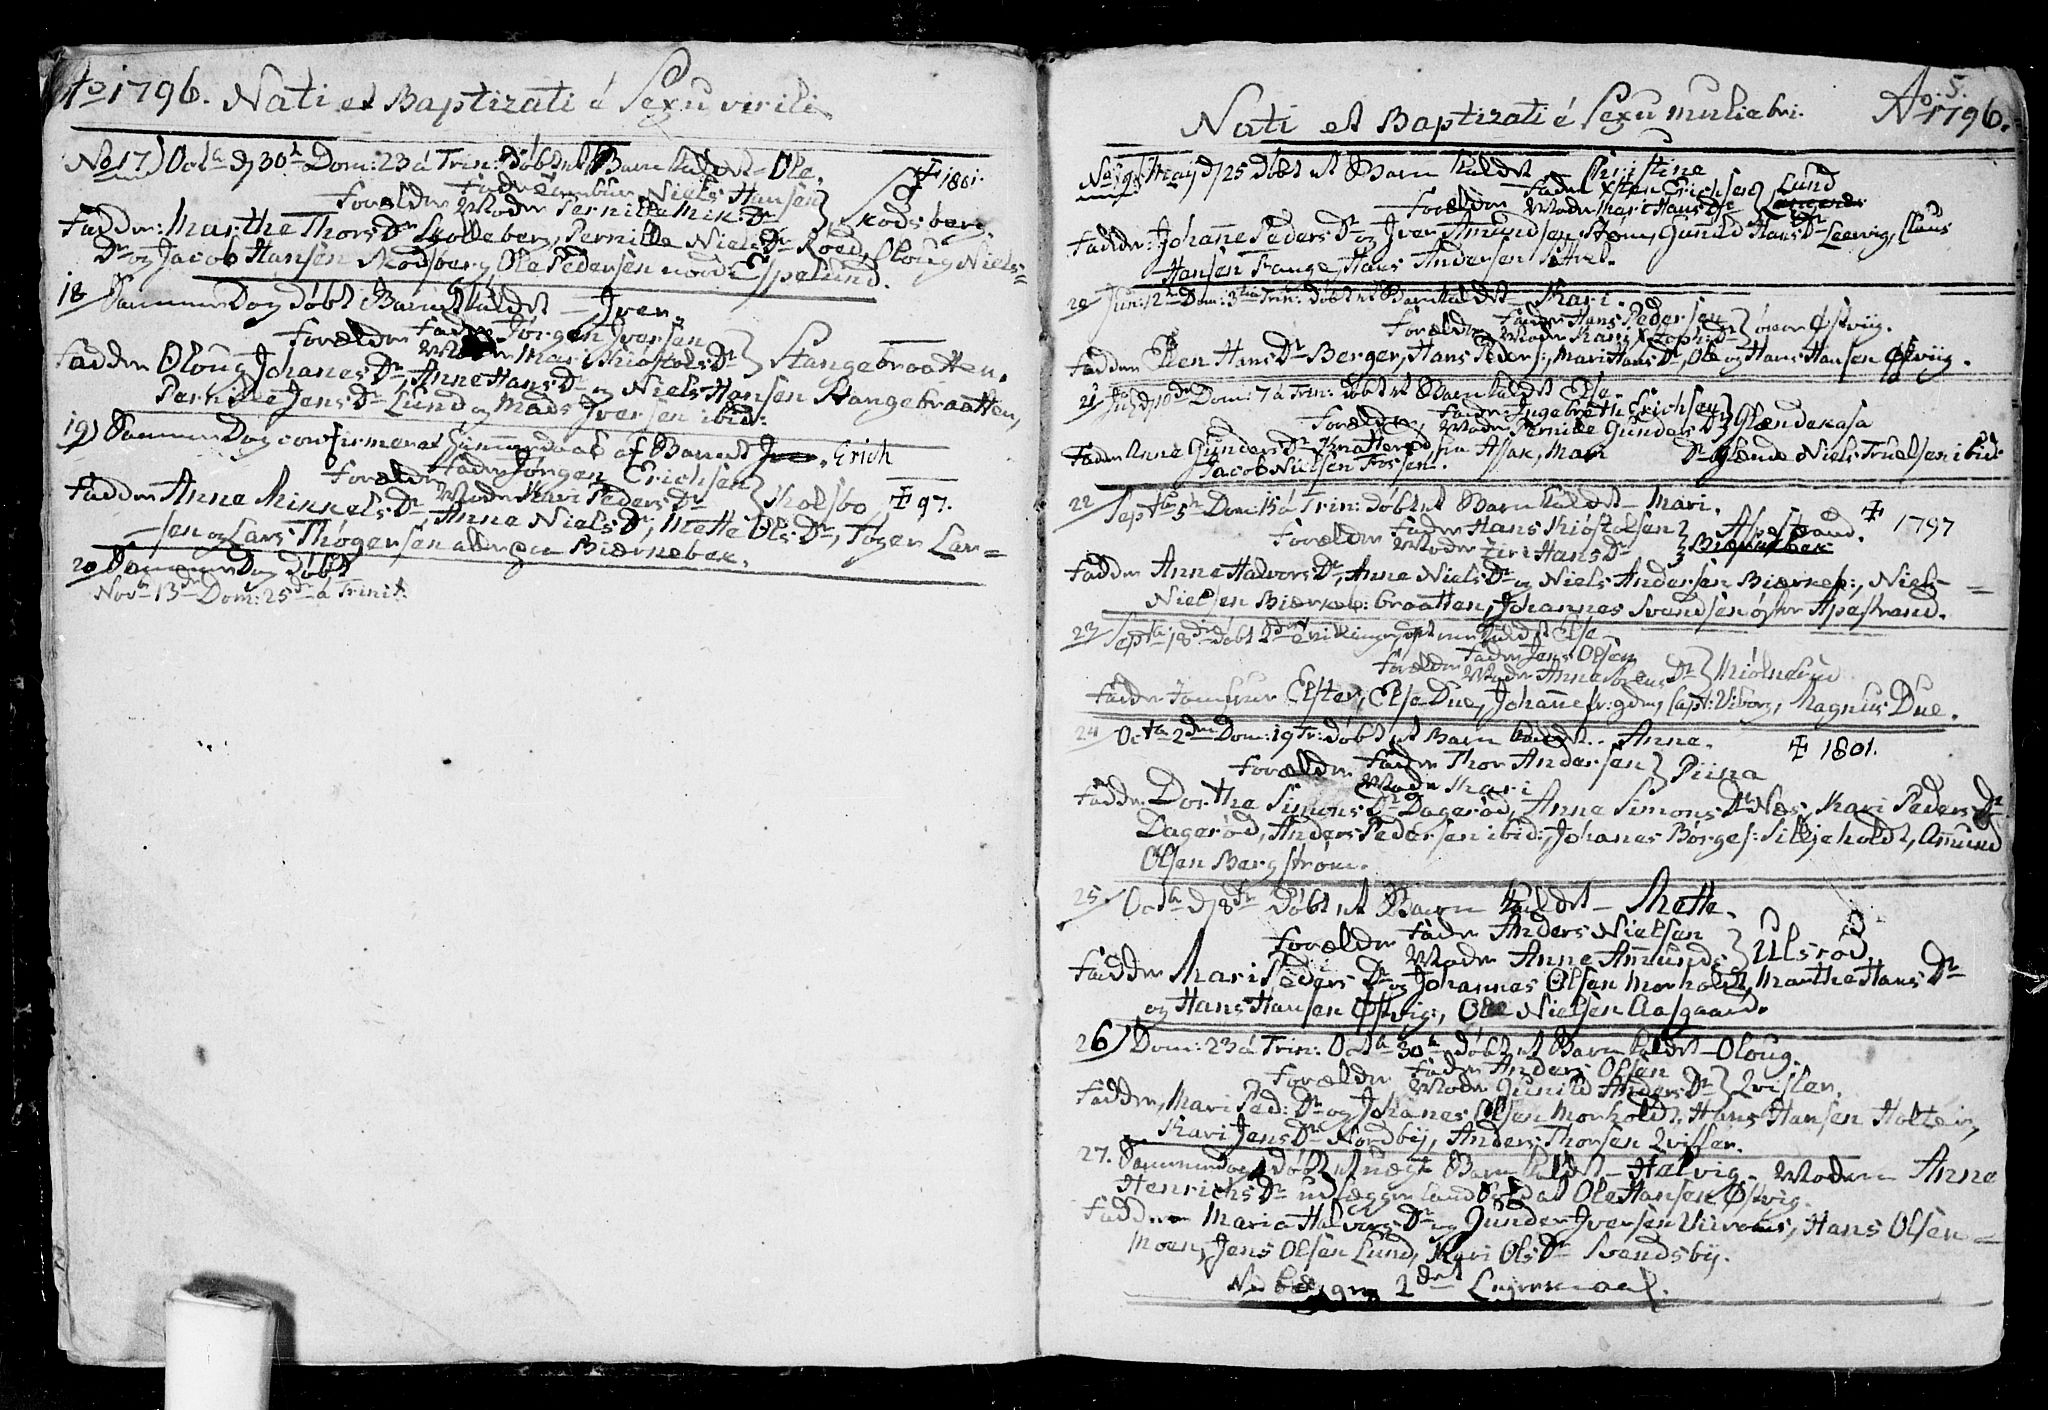 Ao 1796. Nati et Baptizati é Sexu virili
No 17) Octb. d 30te Dom: 23 á Trin: døbt et Barn kaldet - Ole. ‡ 1801.
Forældre Fader Niels Hansen
Moder Pernille Mik: Dr } Skodsberg.
Fadder: Marthe Thors Dr Skolleberg, Pernille Niels Dr Roed, Oloug Niels=
Dr og Jacob Hansen Skodsberg, Ole Pedersen Espelund.
18/ Samme Dag døbt Barnet kaldet - Iver.
Forældre Fader Jørgen Iversen
Moder Mari Kiøstols Dr } Stangebraatten.
Fadder Oloug Johanes Dr, Anne Hans Dr og Niels Hansen Stangebraatten,
Pernille Jens Dr Lund og Mads Iversen ibid:
19) Samme Dag confirmeret Hiemmedaab af Barnet Erich
Forældre Fader Jørgen Erichsen
Moder Kari Peders Dr } Skolsbo ‡ 97.
Fadder Anne Mikkels Dr, Anne Niels Dr, Mette Ols Dr, Tøger Lar=
sen og Lars Thøgersen alle paa Biærnebek.
20 Samme Dag døbt
Novb 13de Dom: 25de á Trinit.
5.
Nati et Baptizati é Sexu muliebri. Ao 1796.
No 19. May d 25 døbt et Barn kaldet Christine
Forældre Fader Xsten Erichsen
Moder Mari Hans Dr } Lund
Fadder: Johane Peders Dr og Iver Amundsen Steen, Gunild Hans Dr Leervig, Claus
Hansen Stange, Hans Andersen
20 Jun: 12te Dom: 3tia Trin: døbt et Barn kaldet - Kari.
Forældre Fader Hans Pedersen
Moder Kari Xstoph: Dr } Østviig.
Fadder Ellen Hans Dr Berger, Hans Peders:, Mari Hans Dr, Ole og Hans Hansen Østviig.
21 Jul d 10de Dom: 7 á Trin: døbt et Barn kaldet Else.
Forældre Fader Ingebreth Erichsen
Moder Pernille Gunders Dr } Glændekasa
Fadder Anne Gunders Dr Knatterød fra Assak, Mari Dr Glænde Niels Truelsen ibid
Jacob Nielsen Tossen.
22 Septb 5te Dom: 15 á Trin: døbt et Barn kaldet - Mari. ‡ 1797
Forældre Fader Hans Kiøstolsen
Moder Siri Hans Dr } Apestrand. Biærnebek
Fadder Anne Halvors Dr, Anne Niels Dr og Niels Andersen Biærneb:, Niels
Nielsen Biærneb: braatten, Johannes Svendsen østre Apestrand.
23 Septb 18de døbt kaldet Else
Forældre Fader Jens Olsen
Moder Anne Sørens Dr } Kiølnelund
Fadder Jomfrue Elster, Else Due, Johane Capt: Viborg, Magnus Due.
24 Octb 2den Dom: 19 Tr: døbt et Barn kaldet - Anne. ‡ 1801.
Forældre Fader Thor Andersen
Moder Kari } Piina
Fadder Dorthe Simons Dr Dagerød, Anne Simons Dr Næs, Kari Peders Dr
Dagerød, Anders Pedersen ibid:, Johanes Børges: Silljeholdt, Amund
Olsen Bergstrøm.
25/ Octb d 8de døbt et Barn kaldet - Mette.
Forældre Fader Anders Nielsen
Moder Anne Amunds } Ulsrod
Fadder Mari Peders Dr og Johannes Olsen Morholdt, Marthe Hans Dr
og Hans Hansen Østvig:, Ole Nielsen Aasgaard.
26/ Dom: 23 á Trin: Octb 30te døbt et Barn kaldet - Oloug.
Forældre Fader Anders Olsen
Moder Gunild Anders Dr } Qvisler.
Fadder, Mari Ped: Dr og Johanes Olsen Morholdt, Hans Hansen Holter,
Kari Jens Dr Nordbÿ, Anders Thorsen Qvisler.
27. Samme Dag døbt et uægte Barn kaldet - Helvig. Moderen Anne
Henrichs Dr udlægger Land Soldat Ole Hansen Østvig.
Fadder Maria Halvors Dr og Gunder Iversen, Hans Olsen
Moen, Jens Olsen Lund, Kari Ols Dr Svendsbÿ.
2det Leiermaal.